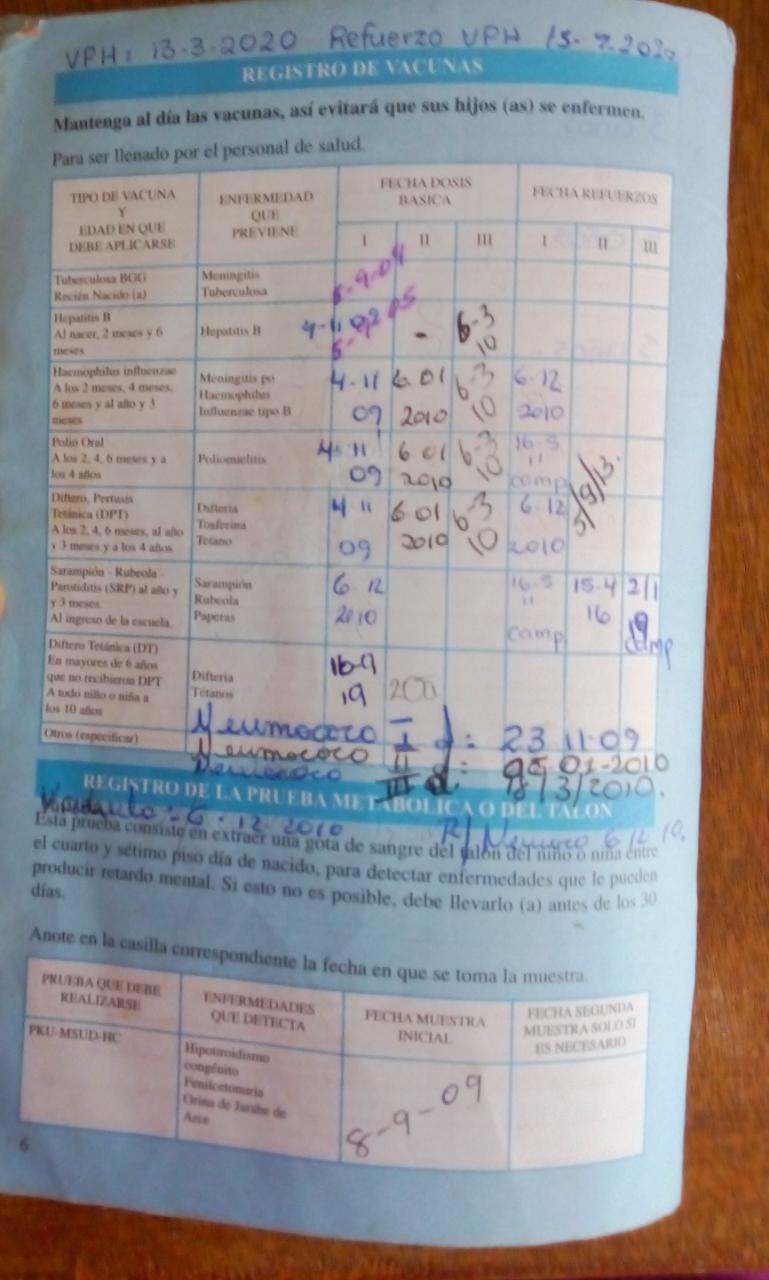 VPH: 13-3-2020 Refuerzo VPH 15-7-2020
REGISTRO DE VACUNAS
Mantenga al día las vacunas, así evitará que sus hijos (as) se enfermen.
Para ser llenado por el personal de salud.
TIPO DE VACUNA
Y
EDAD EN QUE
DEBE APLICARSE
ENFERMEDAD
QUE
PREVIENE
FECHA DOSIS
BASICA
FECHA REFUERZOS
I II III I II III
Tuberculosa BCG
Recién Nacido (a)
Meningitis
Tuberculosa
5-9-09
Hepatitis B
Al nacer, 2 meses y 6
meses
Hepatitis B
4-11-09
-
6-3
10
Haemophilus influenzae
A los 2 meses, 4 meses,
6 meses y al año y 3
meses
Meningitis po
Haemophilus
Influenzae tipo B
4-11
09
6-01
2010
6-3
10
6-12
2010
Polio Oral
A los 2, 4, 6 meses y a
los 4 años
Poliomielitis
4-11
09
6-01
2010
6-3
10
16-5
11
camp
5/9/13.
Diftero, Pertusis
Tetánica (DPT)
A los 2, 4, 6 meses, al año
y 3 meses y a los 4 años
Difteria
Tosferina
Tetano
4-11
09
6-01
2010
6-3
10
6-12
2010
Sarampión - Rubeola -
Parotiditis (SRP) al año y
y 3 meses.
Al ingreso de la escuela.
Sarampión
Rubeola
Paperas
6-12
2010
16-5
11
camp
15-4
16
2/1
19
camp
Diftero Tetánica (DT)
En mayores de 6 años
que no recibieron DPT
A todo niño o niña a
los 10 años
Difteria
Tétanos
16-9
19
Otros (especificar)
Neumococo I d: 23-11-09
Neumococo II d: 05-01-2010
Neumococo III d: 18/3/2010.
REGISTRO DE LA PRUEBA METABOLICA O DEL TALON
6-12-2010 R/ Neumo 6/12/10.
Esta prueba consiste en extraer una gota de sangre del talón del niño o niña entre
el cuarto y sétimo piso día de nacido, para detectar enfermedades que le pueden
producir retardo mental. Si esto no es posible, debe llevarlo (a) antes de los 30
días.
Anote en la casilla correspondiente la fecha en que se toma la muestra.
PRUEBA QUE DEBE
REALIZARSE
ENFERMEDADES
QUE DETECTA
FECHA MUESTRA
INICIAL
FECHA SEGUNDA
MUESTRA SOLO SI
ES NECESARIO
PKU-MSUD-HC
Hipotiroidismo
congénito
Fenilcetonuria
Orina de Jarabe de
Arce
8-9-09
6